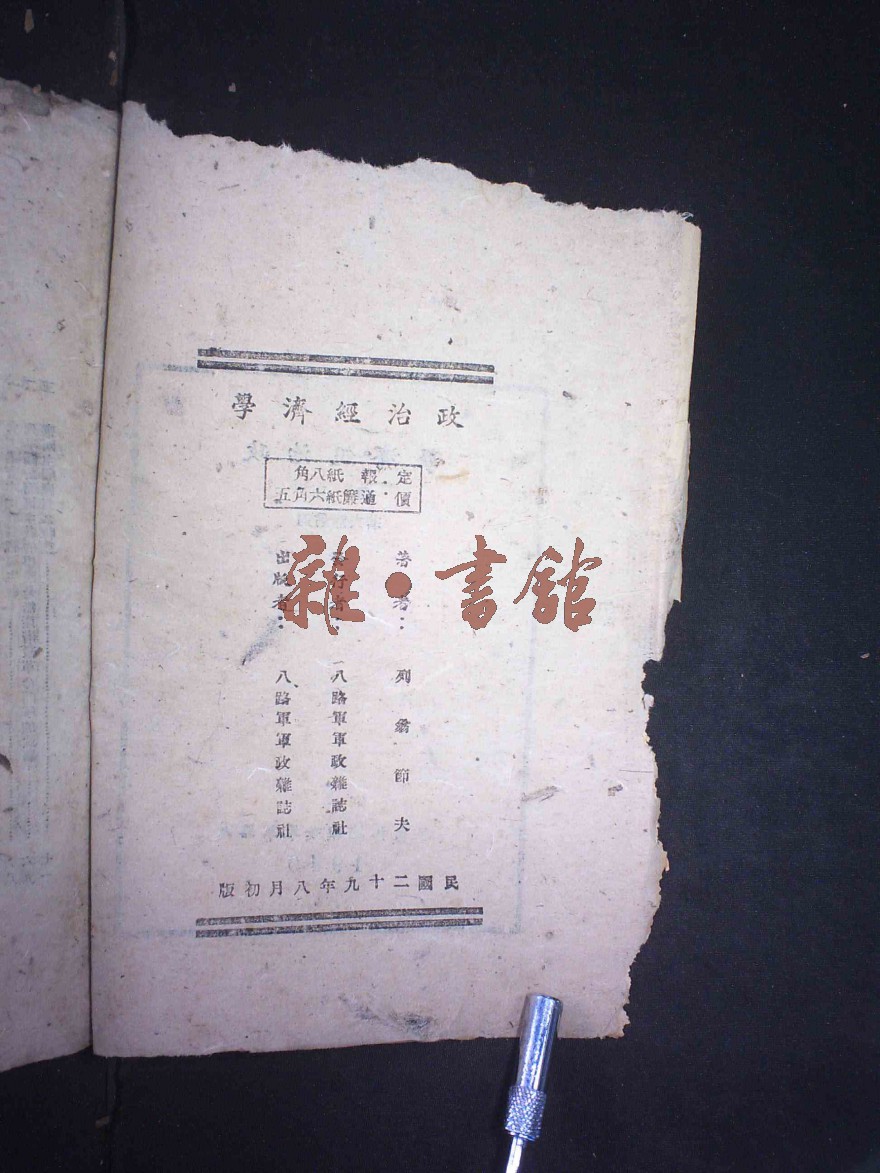 政治經濟學
定價：報紙八角
道簾紙六角五
著者：列昂節夫
發行者：八路軍軍政雜誌社
出版者：八路軍軍政雜誌社
民國二十九年八月初版
雜·書館